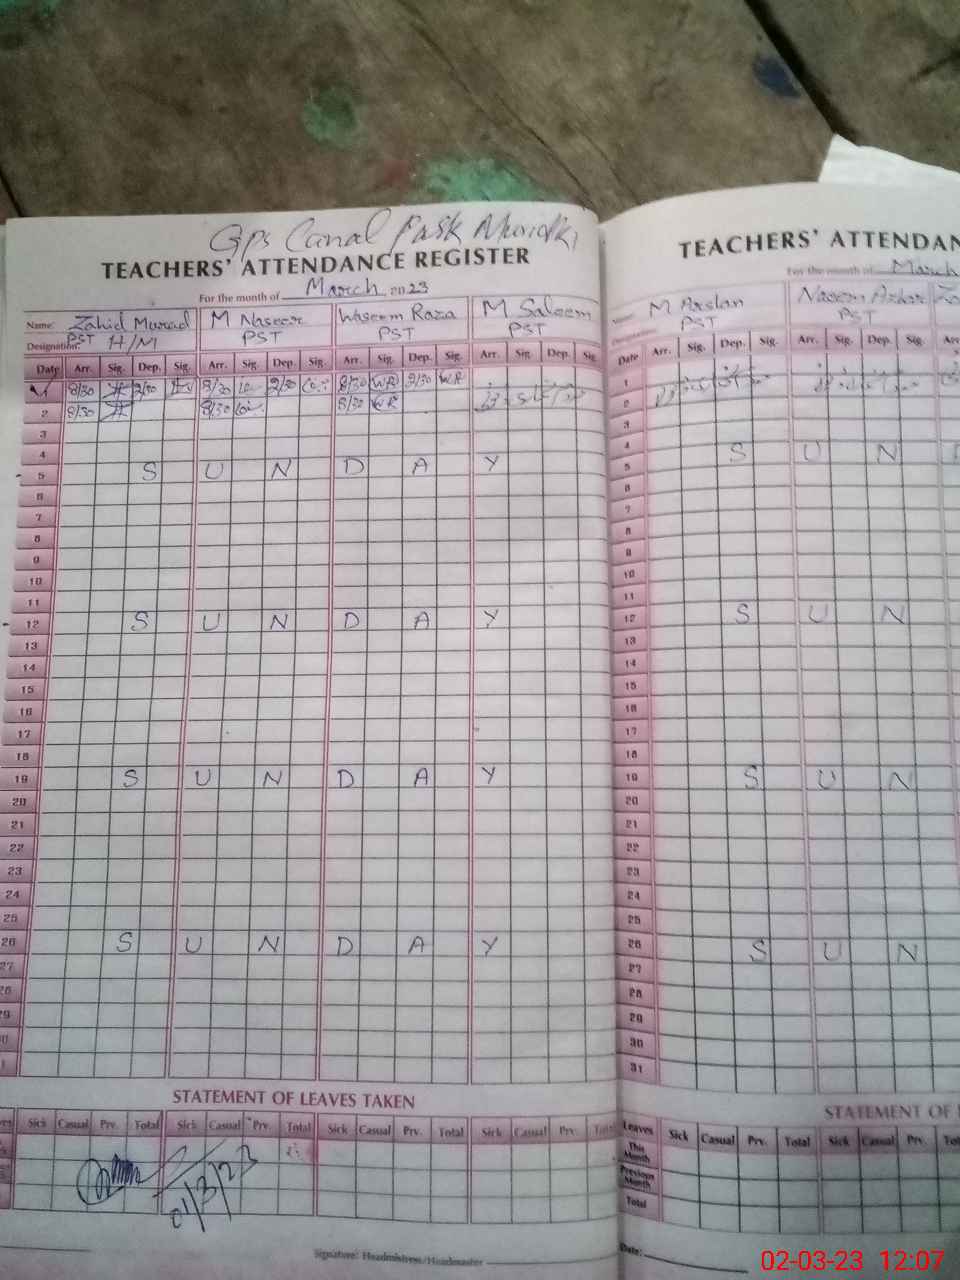 GPS Canal Park Muridki
TEACHERS' ATTENDANCE REGISTER
For the month of March 2023
Name: Zahid Murad M Naseer Waseem Raza M Saleem
Designation: PST H/M PST PST PST
Date Arr. Sig. Dep. Sig. Arr. Sig. Dep. Sig. Arr. Sig. Dep. Sig. Arr. Sig. Dep. Sig.
8/30 2/30 8/30 2/30 8/30 WR 2/30 WR
2 8/30 8/30 8/30 WR
3
4
5 S U N D A Y
6
7
8
9
10
11
12 S U N D A Y
13
14
15
16
17
18
19 S U N D A Y
20
21
22
23
24
25
26 S U N D A Y
27
28
29
STATEMENT OF LEAVES TAKEN
Sick Casual Prv. Total Sick Casual Prv. Total Sick Casual Prv. Total Sick Casual Prv. Total
01/3/23
Signature: Headmistress/Headmaster
TEACHERS' ATTENDAN
For the month of March
M Arslan Naseem Azhar Za
PST PST
Date Arr. Sig. Dep. Sig. Arr. Sig. Dep. Sig. Arr
1
2
3
4
5 S U N D
6
7
8
9
10
11
12 S U N
13
14
15
16
17
18
19 S U N
20
21
22
23
24
25
26 S U N
27
28
29
30
31
STATEMENT OF
Leaves Sick Casual Prv. Total Sick Casual Prv. Tot
This Month
Previous Month
Total
Date:
02-03-23 12:07